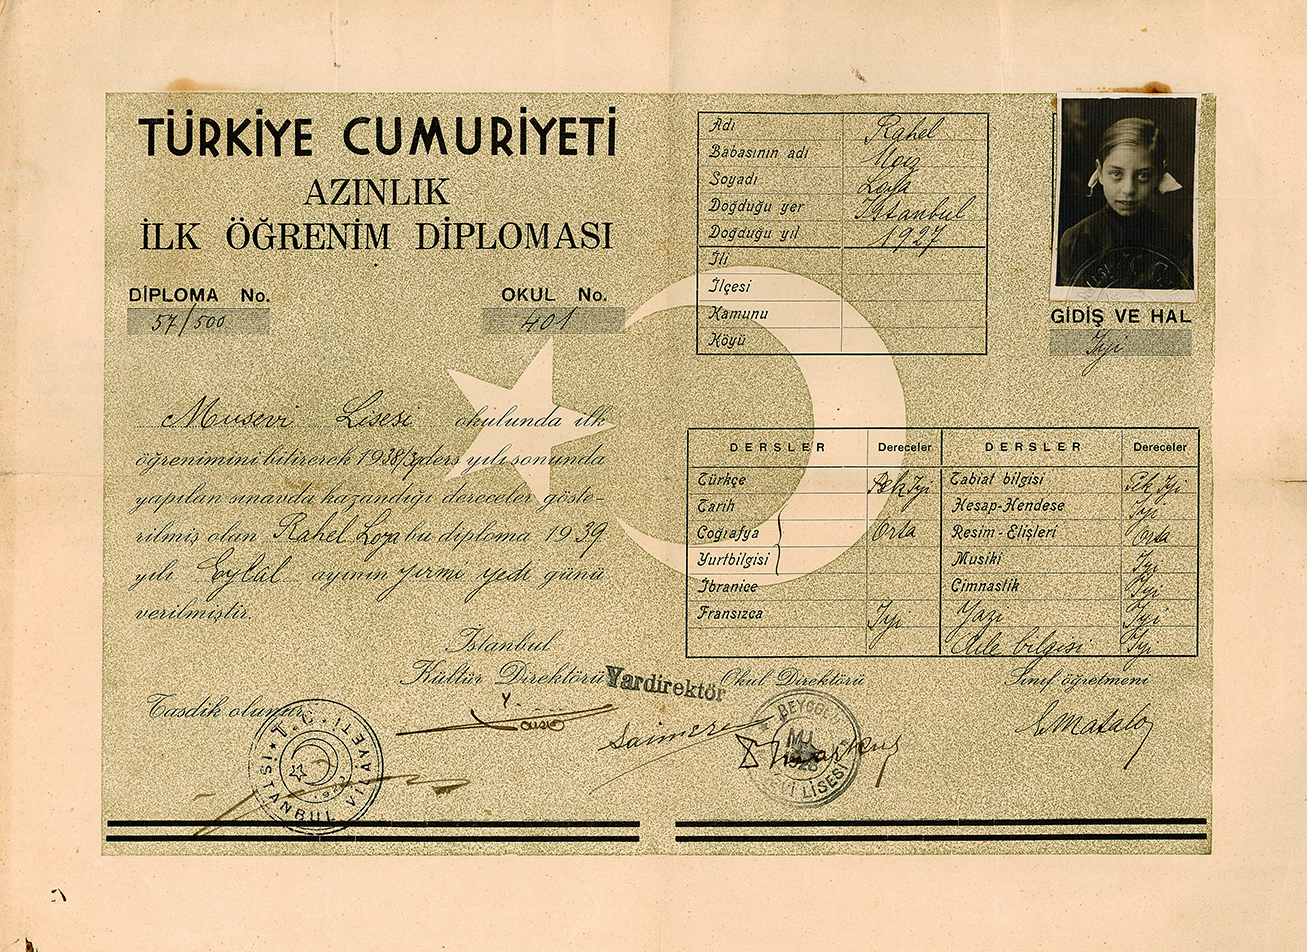 TÜRKİYE CUMURİYETİ
AZINLIK
İLK ÖĞRENİM DİPLOMASI
DİPLOMA No.
57/500
OKUL No.
401
Musevi Lisesi okulunda ilk
öğrenimini bitirerek 1938/39 ders yılı sonunda
yapılan sınavda kazandığı dereceler göste-
rilmiş olan Rahel Loya bu diploma 1939
yılı Eylûl ayının yirmi yedi günü
verilmiştir.
İstanbul
Kültür Direktörü
Tasdik olunur.
T.C. İSTANBUL VİLAYETİ
Adı Rahel
Babasının adı
Soyadı Loya
Doğduğu yer İstanbul
Doğduğu yıl 1927
İli
İlçesi
Kamunu
Köyü
GİDİŞ VE HAL
İyi
DERSLER Dereceler DERSLER Dereceler
Türkçe Pek İyi Tabiat bilgisi Pek İyi
Tarih Hesap-Hendese İyi
Coğrafya Orta Resim-Elişleri Orta
Yurtbilgisi Musiki İyi
İbranice Cimnastik İyi
Fransızca İyi Yazı İyi
Aile bilgisi İyi
Yardirektör Okul Direktörü Sınıf öğretmeni
BEYOĞLU
LİSESİ